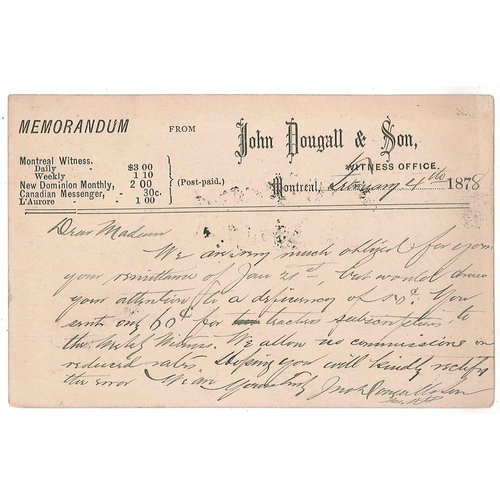 MEMORANDUM FROM John Dougall & Son,
WITNESS OFFICE.
Montreal, February 4th 1878
Montreal Witness.
Daily $3 00
Weekly 1 10
New Dominion Monthly, 2 00
Canadian Messenger, 30c.
L'Aurore 1 00
(Post-paid.)
Dear Madam
We are very much obliged for your
your remittance of Jan 21st, but would draw
your attention to a deficiency of You
sent only 60¢ for teachers subscription to
the Witness. We allow no commissions on
reduced rates. Hoping you will kindly rectify
the error We are Yours truly John Dougall & Son